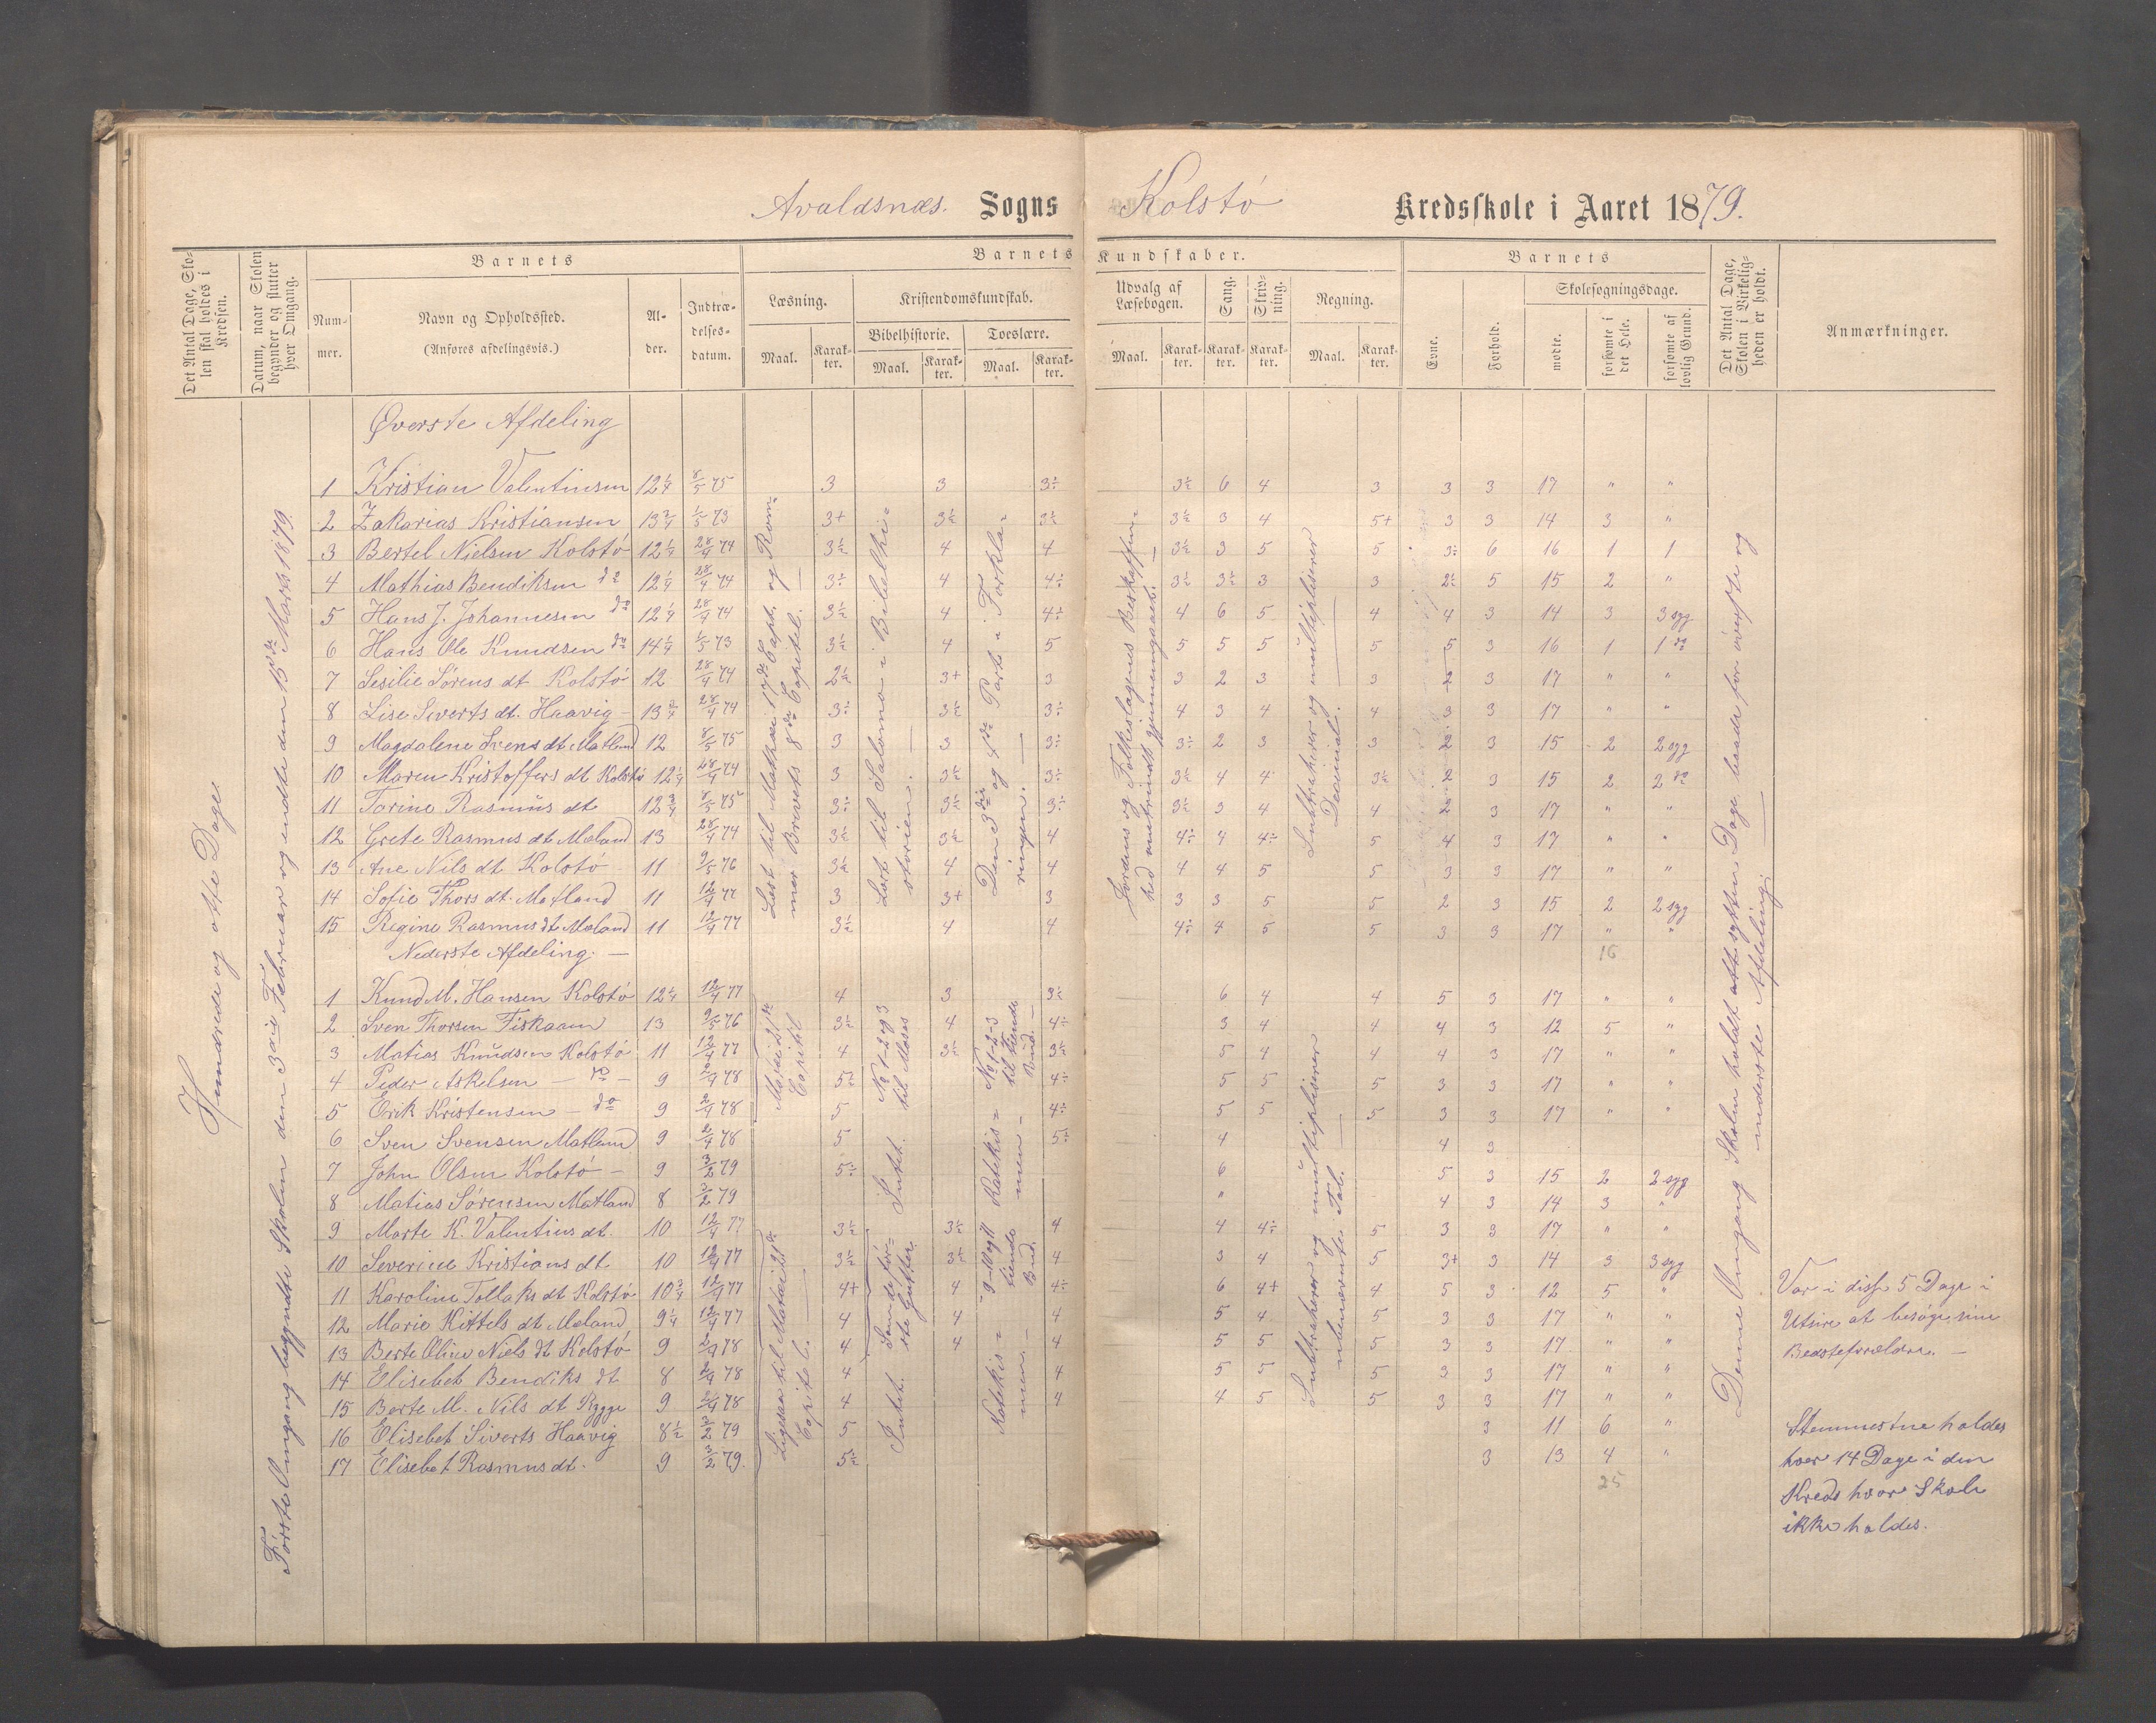 Avaldsnæs. Sogns Kolstø Kredsskole i Aaret 1879.
Det Antal Dage, Sko-
len skal holdes i
Kredsen.
Datum, naar Skolen
begynder og slutter
hver Omgang.
Barnets
Num-
mer.
Navn og Opholdssted.
(Anføres afdelingsvis.)
Al-
der.
Indtræ-
delses-
datum.
Barnets Kundskaber.
Læsning.
Maal. Karak-
ter.
Kristendomskundskab.
Bibelhistorie.
Maal. Karak-
ter.
Troeslære.
Maal. Karak-
ter.
Udvalg af
Læsebogen.
Maal. Karak-
ter.
Sang.
Karak-
ter.
Skriv-
ning.
Karak-
ter.
Regning.
Maal. Karak-
ter.
Barnets
Evne.
Forhold.
Skolesøgningsdage.
mødte.
forsømte i
det Hele.
forsømte af
lovlig Grund.
Det Antal Dage,
Skolen i Virkelig-
heden er holdt.
Anmærkninger.
Hundrede og otte Dage
Første Omgang begyndte Skolen den 3die Februar og endte den 15de Marts 1879.
Øverste Afdeling
1 Kristian Valentinsen 12 1/4 8/5 75 3 3 3÷ 3½ 6 4 3 3 3 17 " "
2 Zakarias Kristiansen 13 3/4 1/5 73 3+ 3½ 3½ 3½ 3 4 5+ 3 3 14 3 "
3 Bertel Nielsen Kolstø 12 1/4 28/4 74 3½ 4 4 3½ 3 5 5 3÷ 6 16 1 1
4 Mathias Bendiksen do 12 1/4 28/4 74 3÷ 4 4÷ 3½ 3½ 3 3 2½ 5 15 2 "
5 Hans J. Johannesen do 12 1/4 28/4 74 3½ 4 4÷ 4 6 5 4 4 3 14 3 3 syg
6 Hans Ole Knudsen do 14 1/4 1/5 73 3½ 4 5 5 5 5 5 5 3 16 1 1 do
7 Sesilie Sørens dt Kolstø 12 28/4 74 2½ 3+ 3 3 2 3 3 3 17 " "
8 Lise Siverts dt. Haavig 13 3/4 28/4 74 3÷ 3½ 3÷ 4 3 4 4 3 3 17 " "
9 Magdalene Svens dt Matland 12 8/5 75 3 3 3÷ 3÷ 2 3 3 2 3 15 2 2 syg
10 Maren Kristoffers dt Kolstø 12 1/4 28/4 74 3 3½ 3÷ 3½ 4 4 3½ 2 3 15 2 2 do
11 Torine Rasmus dt 12 3/4 8/5 75 3÷ 3½ 3÷ 3½ 3 4 4 3 17 " "
12 Grete Rasmus dt Mæland 13 28/4 74 3½ 3½ 4 4÷ 4 4÷ 5 4 3 17 " "
13 Ane Nils dt Kolstø 11 9/5 76 3½ 4 4 4 4 5 5 3 3 17 " "
14 Sofie Thors dt Matland 11 12/4 77 3 3+ 3 3 3 5 5 2 3 15 2 2 syg
15 Regine Rasmus dt Mæland 11 12/4 77 3½ 4 4 4÷ 4 5 5 3 3 17 " "
16
Læst til Mathæi 17de Capt. og Rom=
mer Brevets 8de Capitel.
Læst til Salamo i Bibelhi=
storien.
Den 3die og 4de Part i Forkla=
ringen.
Jordens og Folkeslagenes Beskaffen=
hed metrindt gjennemgaaet.
Subtraherer og multipliserer
Decimal.
Nederste Afdeling.
1 Knud M. Hansen Kolstø 12 1/4 12/4 77 4 3 3½ 6 4 4 5 3 17 " "
2 Sven Thorsen Fiskaaen 13 9/5 76 3½ 4 4÷ 3 4 4 4 3 12 5 "
3 Matias Knudsen Kolstø 11 12/4 77 4 3½ 3½ 5 4 4 4 3 17 " "
4 Peder Askelsen do 9 2/4 78 5½ 4÷ 5 5 5 3 3 17 " "
5 Erik Kristensen do 9 2/4 78 5 4÷ 5 5 5 3 3 17 " "
6 Sven Svensen Matland 9 2/4 78 5 5÷ 4 4 3
7 John Olsen Kolstø 9 3/2 79 5÷ 6 5 3 15 2 2 syg
8 Matias Sørensen Matland 8 3/2 79 " 4 3 14 3 "
9 Marte K. Valentins dt. 10 12/4 77 3½ 3½ 4 4 4÷ 5 3 3 17 " "
10 Severine Kristians dt 10 12/4 77 3½ 3½ 4 3 4 5 3+ 3 14 3 3 syg
11 Karoline Tollaks dt Kolstø 10 3/4 12/4 77 4+ 4 4÷ 6 4+ 4 5 3 12 5 "
12 Marie Kittels dt Mæland 9 1/4 12/4 77 4 4 4 5 4 5 3 3 17 " "
13 Berte Oline Niels dt Kolstø 9 2/4 78 4 4 4 5 5 5 3 3 17 " "
14 Elisebet Bendiks dt 8 2/4 78 4 4 5 5 5 3 3 17 " "
15 Berte M. Nils dt Rygge 9 2/4 78 4 4 4 5 5 3 3 17 " "
16 Elisebet Siverts Haavig 8½ 3/2 79 5 3 11 6 "
17 Elisebet Rasmus dt. 9 3/2 79. 5½ 3 13 4 "
25
Capitel
No 1-2 og 3
til Moses
Intet.
No 1-2-3
til tiende
Bud.
Katekis=
men
Ligesaa til
Capitel.
Samme før=
ste Gutter.
Intet.
9-10 og 11
tiende
Bud.
Katekis=
men.
Subtraherer og multipliserer
ubenævnte Tal.
Denne Omgang Skolen holdt atten Dage baade for øverste og
nederste Afdeling.
Var i disse 5 Dage i
Utsire at besøge sine
Bedsteforældre. —
Stemmestue holdes
hver 14 Dage i den
Kreds hvor Skole
ikke holdes.